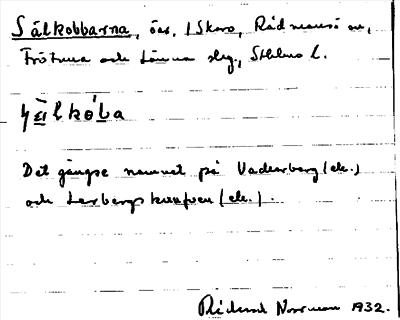 Sälkobbarna, öar, 1 Skaro, Rådmansö sn,
Frötuna och Länna slg., Sthlms l.
sä̀lkóba
Det gängse namnet på Vadearberg (ek.)
och Lerbergskuppen (ek.).
Rickard Norrman 1932.